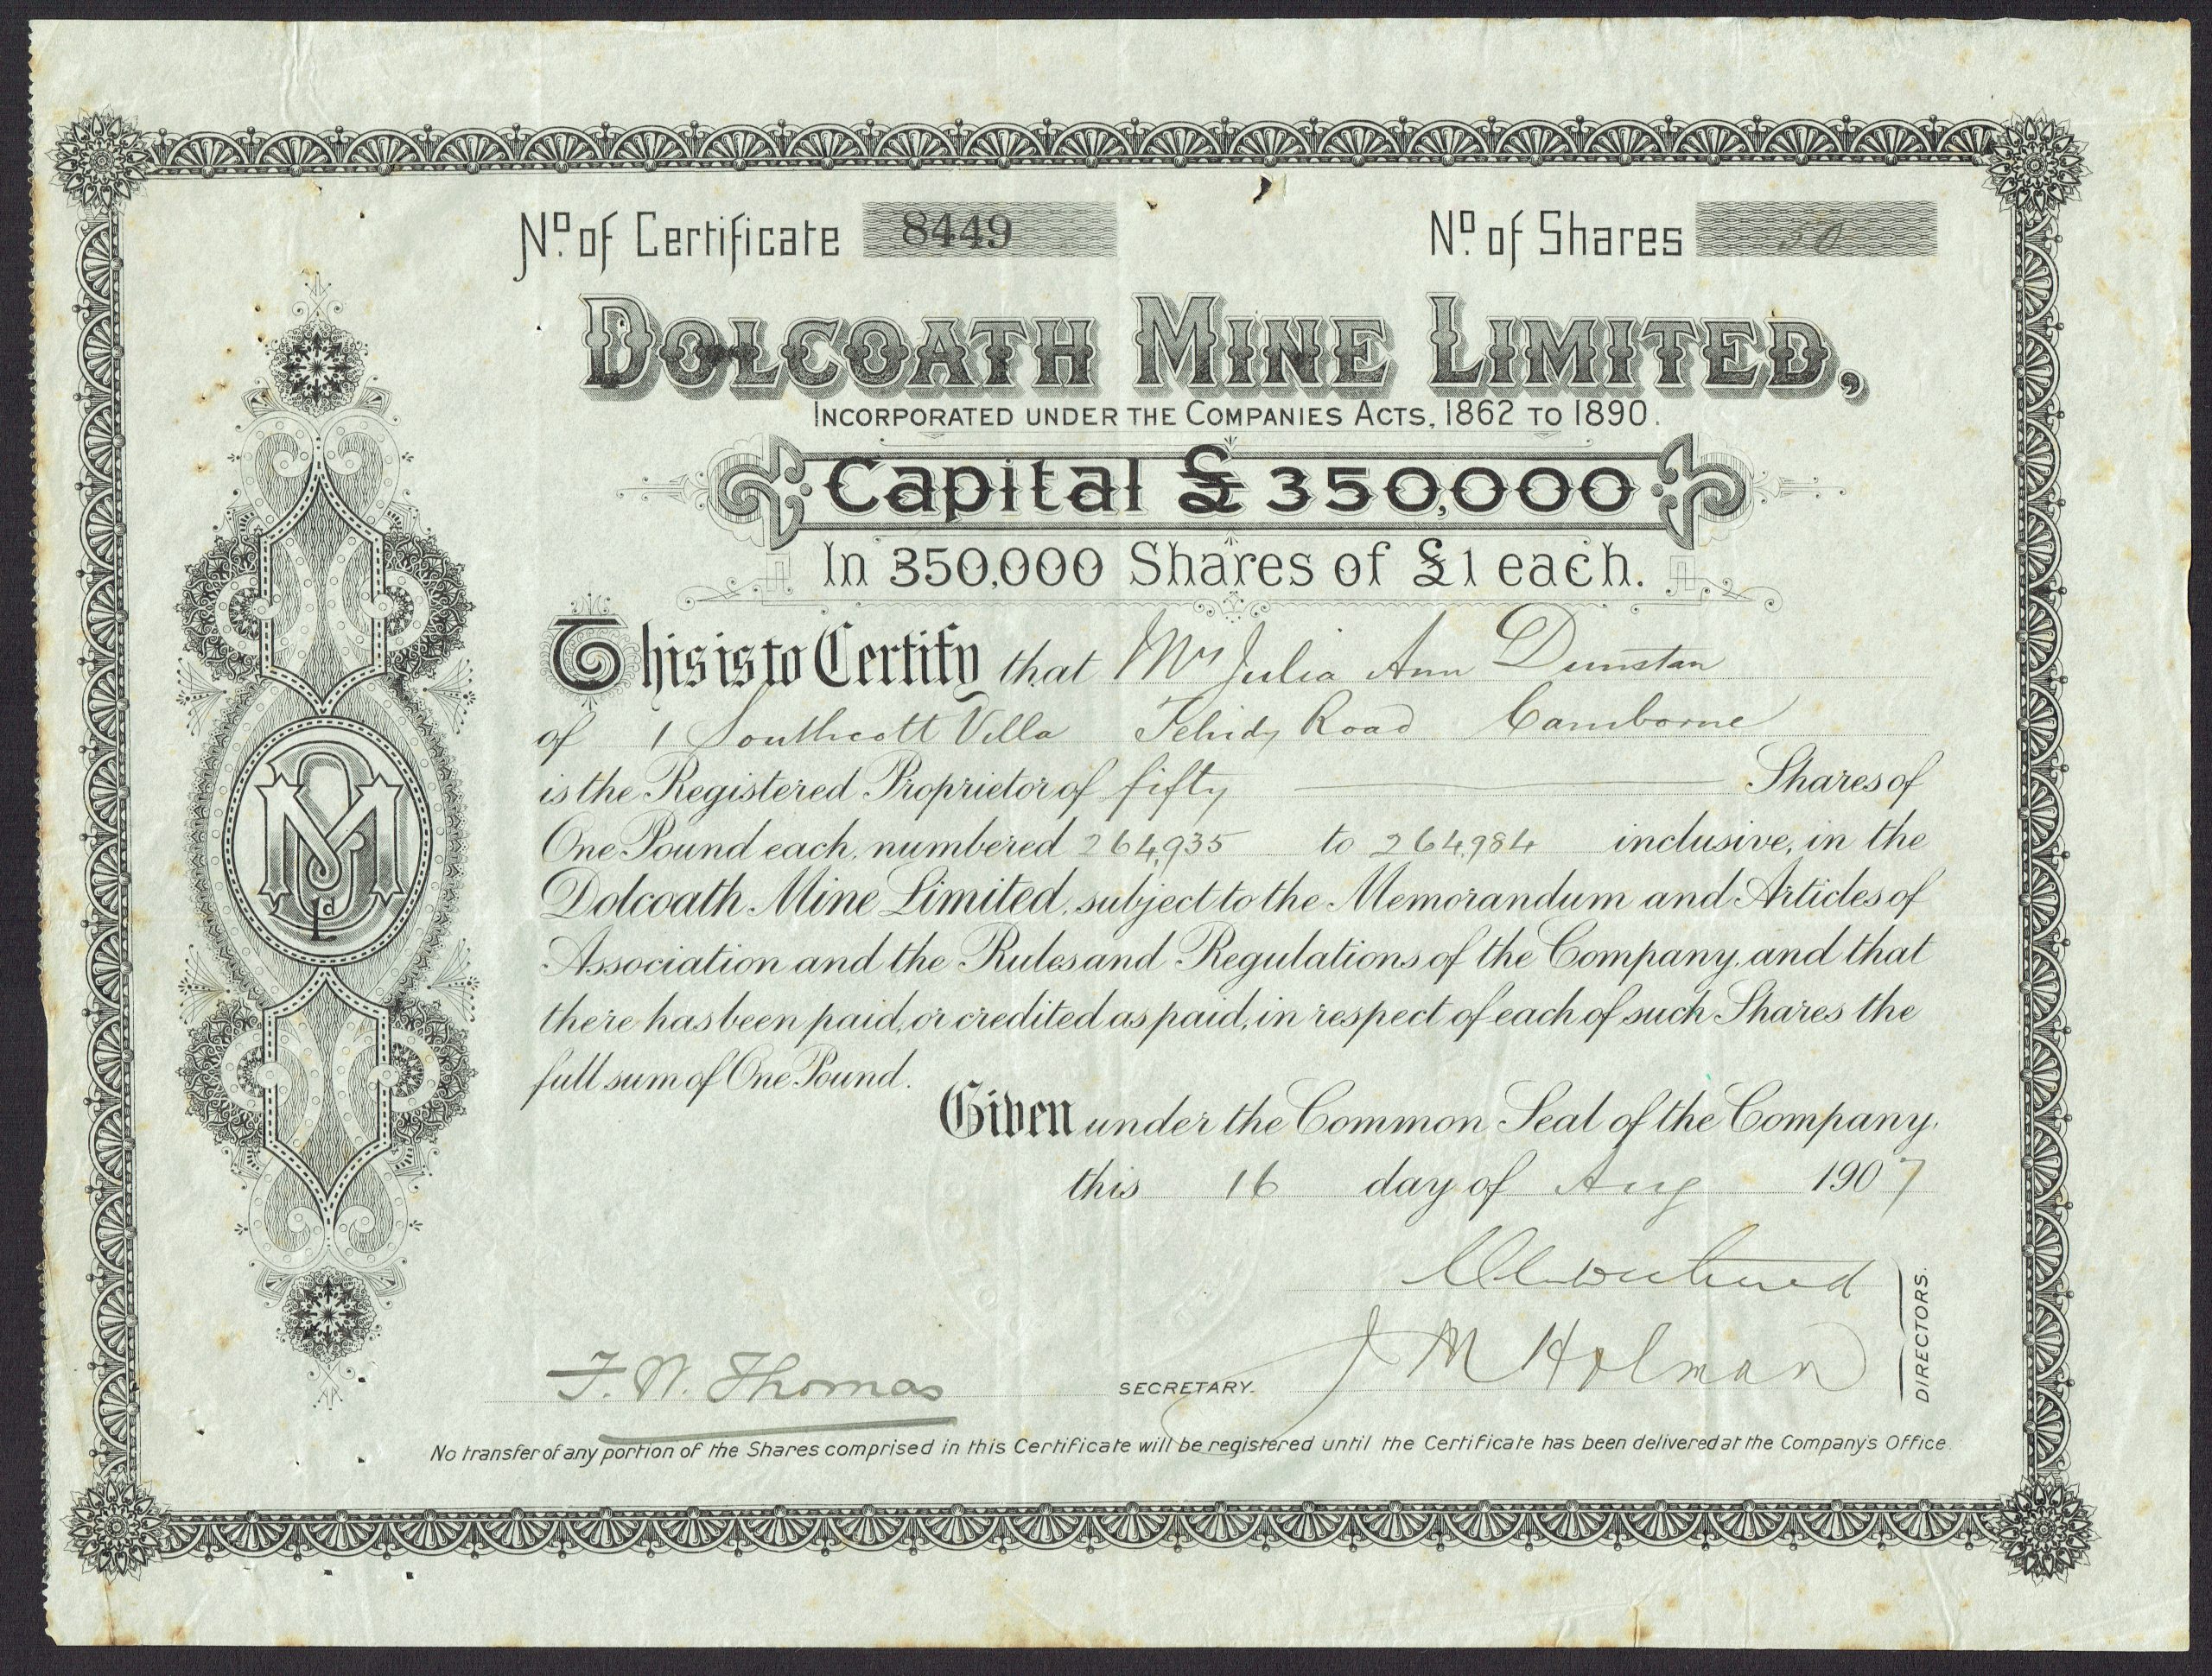 No. of Certificate 8449 No. of Shares 50
DOLCOATH MINE LIMITED,
INCORPORATED UNDER THE COMPANIES ACTS, 1862 TO 1890.
Capital £350,000
In 350,000 Shares of £1 each.
This is to Certify that Mrs Julia Ann Dunstan
of 1 Southcott Villa Tehidy Road Camborne
is the Registered Proprietor of fifty Shares of
One Pound each, numbered 264,935 to 264,984 inclusive, in the
Dolcoath Mine Limited, subject to the Memorandum and Articles of
Association and the Rules and Regulations of the Company, and that
there has been paid, or credited as paid, in respect of each of such Shares the
full sum of One Pound.
Given under the Common Seal of the Company,
this 16 day of Aug 1907
DM Ld
J M Holman
DIRECTORS.
F. W. Thomas SECRETARY.
No transfer of any portion of the Shares comprised in this Certificate will be registered until the Certificate has been delivered at the Company's Office.